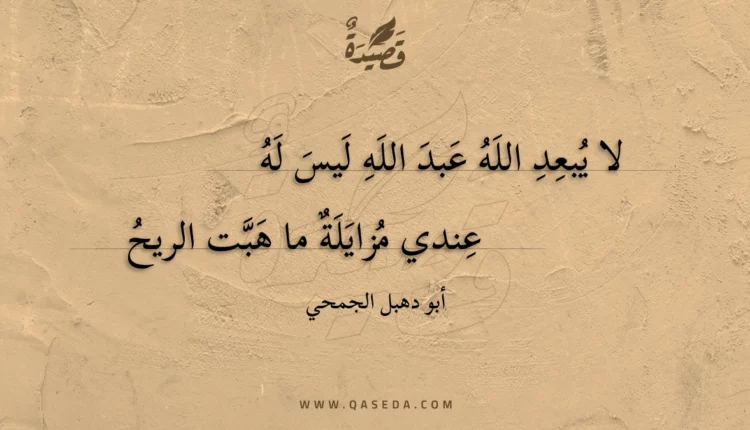 قَصِيْدَةٌ
لا يُبعِدِ اللَهُ عَبدَ اللَهِ لَيسَ لَهُ
عِندي مُزايَلَةٌ ما هَبَّت الريحُ
أبو دهبل الجمحي
WWW.QASEDA.COM